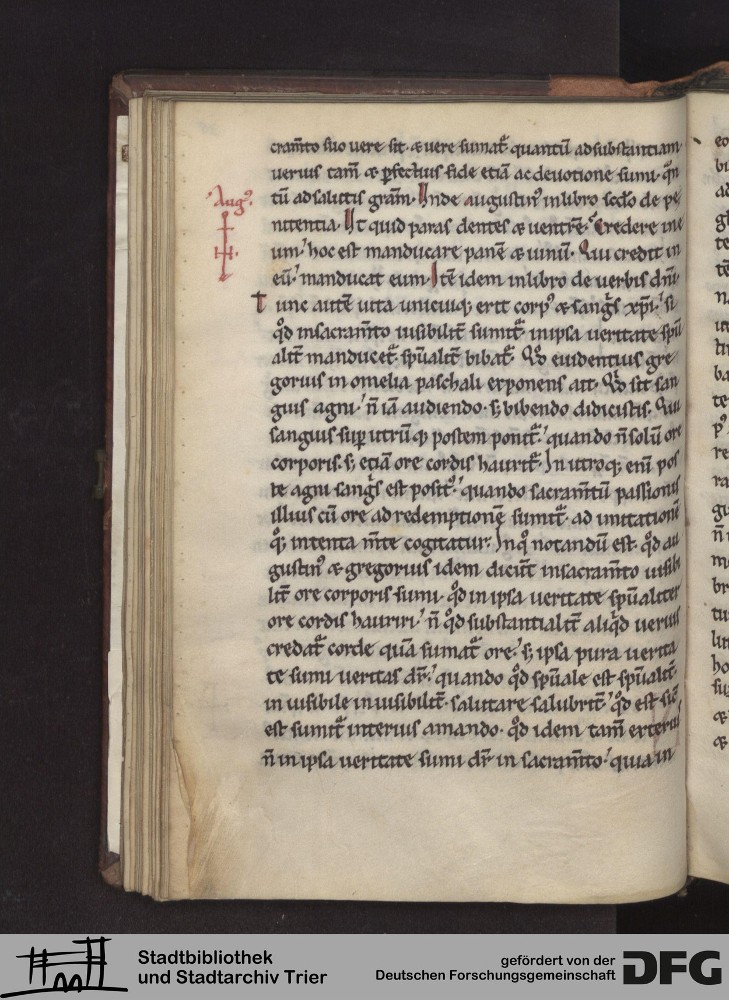 cram̄to suo uere sit· & uere sumat᷑ quantū ad substantiam·
uerius tam̄ & ꝑfectius fide etiā ac deuotione sumi· q̄n
tū ad salutis gr̄am· Unde augustin᷒ in libro sc̄do de pe
nitentia· Ut quid paras dentes & uentrē· Credere in e
um· hoc est manducare panē & uinū· Qui credit in
eū· manducat eum· Itē idem in libro de uerbis dn̄i·
Tunc autē uita unicuiq; erit corp᷒ & sang̃s xp̄i· si
qd̄ in sacram̄to uisibilit̄ sumit᷑ in ipsa ueritate spū
alit̄ manducet᷑· spūalit̄ bibat᷑· Qd̄ euidentius gre
gorius in omelia paschali exponens ait· Qd̄ sit san
guis agni· n̄ iā audiendo· s; bibendo didicistis· Qui
sanguis suꝑ utrūq; postem ponit᷑· quando n̄ solū ore
corporis· s; etiā ore cordis haurit᷑· In utroq; enī pos
te agni sang̃s est posit᷒· quando sacram̄tū passionis
illius cū ore ad redemptionē sumit᷑· ad imitationē
q̄; intenta m̄te cogitatur· In q° notandū est· qd̄ au
gustin᷒ & gregorius idem dicūt in sacram̄to uisibi
lit̄ ore corporis sumi· qd̄ in ipsa ueritate spūaliter
ore cordis hauriri· n̄ qd̄ substantialit̄ aliqd̄ uerius
credat᷑ corde quā sumat᷑ ore· s; ipsa pura uerita
te sumi ueritas dr̄· quando qd̄ spūale est spūalit̄·
in uisibile in uisibilit̄· salutare salubrit̄· qd̄ est sic̄
est sumit᷑ interius amando· qd̄ idem tam̄ exterius
n̄ in ipsa ueritate sumi dr̄ in sacram̄to· quia in
Aug᷒·
Stadtbibliothek
und Stadtarchiv Trier
gefördert von der
Deutschen Forschungsgemeinschaft
DFG